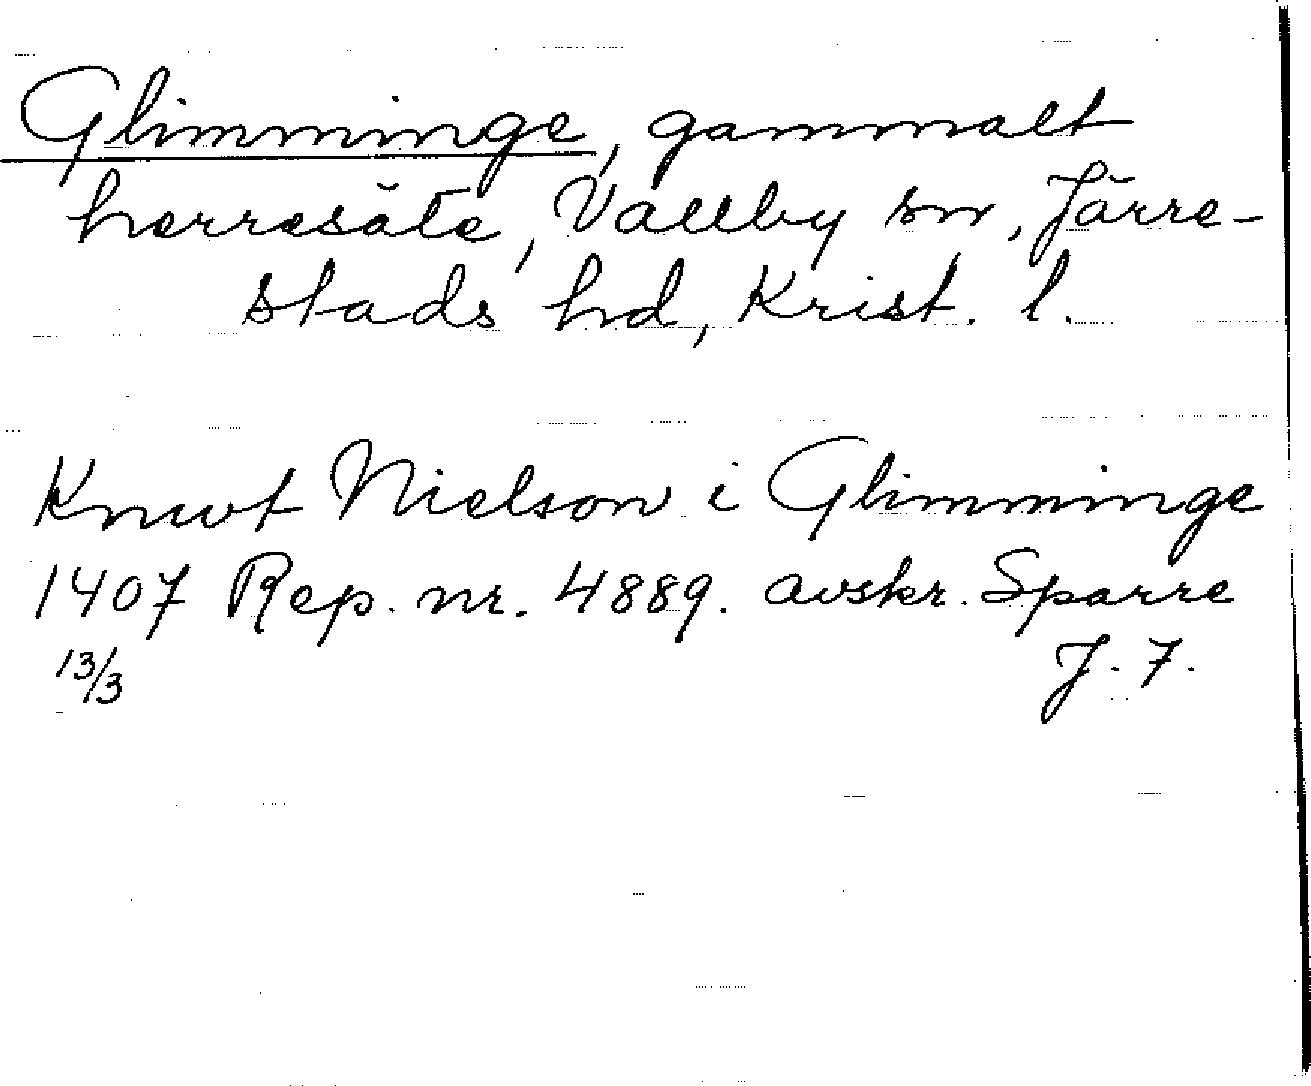 Glimminge, gammalt
herresäte, Vallby sn, Järre-
stads hd, Krist. l.
Knwt Nielson i Glimminge
1407 Rep. nr. 4889. avskr. Sparre
13/3 J. 7.